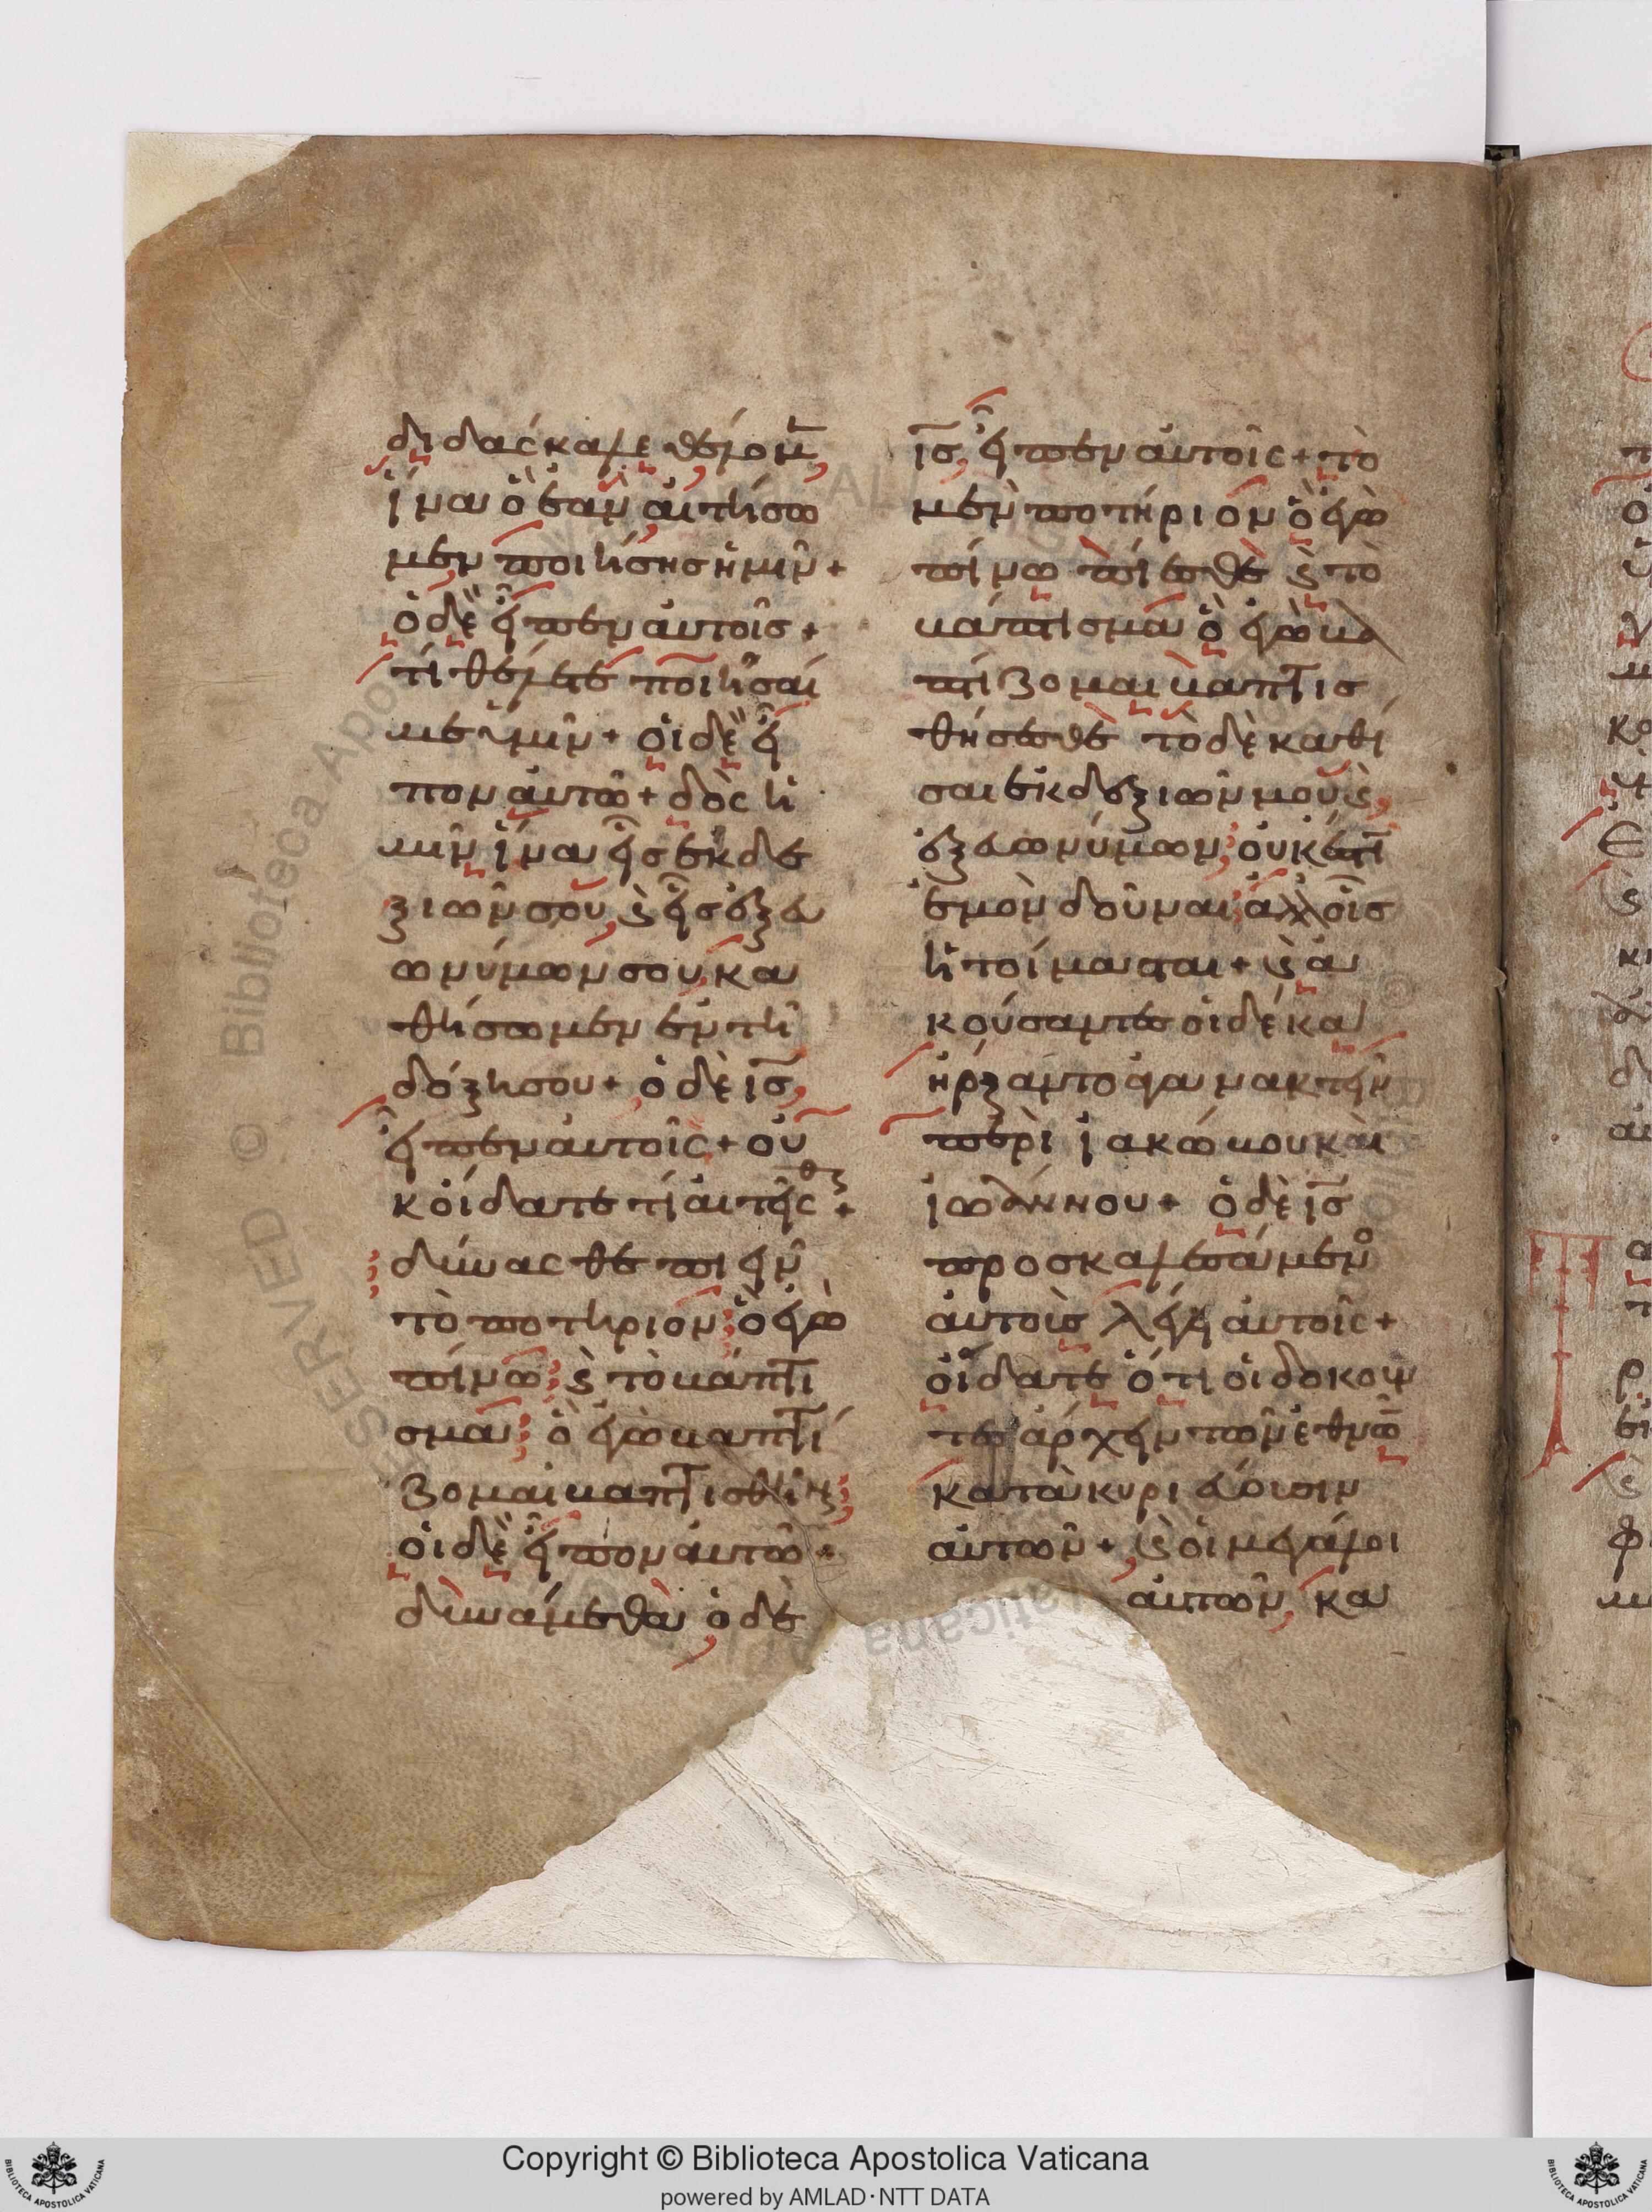 διδάσκαλε θέλομ̅
ἵνα ὃ ἐὰν αἰτήσω
μεν ποιήσης ἡμῖν +
ὁ δὲ εἶπεν αὐτοῖς +
τί θέλετε ποιῆσαί
με ὑμῖν + οἱ δὲ εἶ
πον αὐτῶ + δὸς ἡ
μῖν ἵνα εἷς ἐκ δε
ξιῶν σου, ϗ εἷς ἐξ εὐ
ωνύμων σου, κα
θήσωμεν ἐν τῆ
δόξη σου + ὁ δὲ ι̅σ̅
εἶπεν αὐτοῖς + οὐ
κ οἴδατε τί αἰτεῖσθε +
δύνασθε πιεῖν
τὸ ποτήριον ὃ ἐγὼ
πίνω ϗ τὸ βάπτι
σμα ὃ ἐγὼ βαπτί
ζομαι βαπτισθῆν
οἱ δὲ εἶπον αὐτῶ +
δυνάμεθα ὁ δὲ
ι̅σ̅ εἶπεν αὐτοῖς + τὸ
μὲν ποτήριον ὃ ἐγὼ
πίνω πίεσθε ϗ τὸ
βάπτισμα ὃ ἐγὼ βα
πτίζομαι βαπτισ
θήσεσθε τὸ δὲ καθί
σαι ἐκ δεξιῶν μου ϗ
ἐξ εὐωνύμων, οὐκ ἔστι
ἐμὸν δοῦναι ἀλλ οἷς
ἡτοίμασται + ϗ ἀ
κούσαντες οἱ δέκα
ἤρξαντο ἀγανακτεῖν
περὶ ἰακώβου καὶ
ἰωάννου + ὁ δὲ ι̅σ̅
προσκαλεσάμενο
αὐτοὺς λέγει αὐτοῖς +
οἴδατε ὅτι οἱ δοκοῦν
τες ἄρχειν τῶν ἐθνῶ̅
κατακυριεύουσιν
αὐτῶν + ϗ οἱ μεγάλοι
αὐτῶν, κα
Copyright © Biblioteca Apostolica Vaticana
powered by AMLAD·NTT DATA